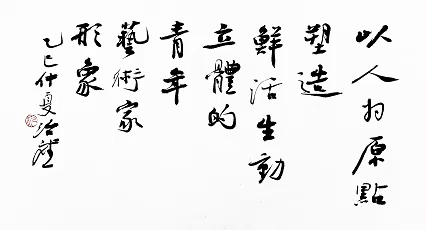 以人为原點
塑造
鮮活生動
立體的
青年
藝術家
形象
乙巳仲夏